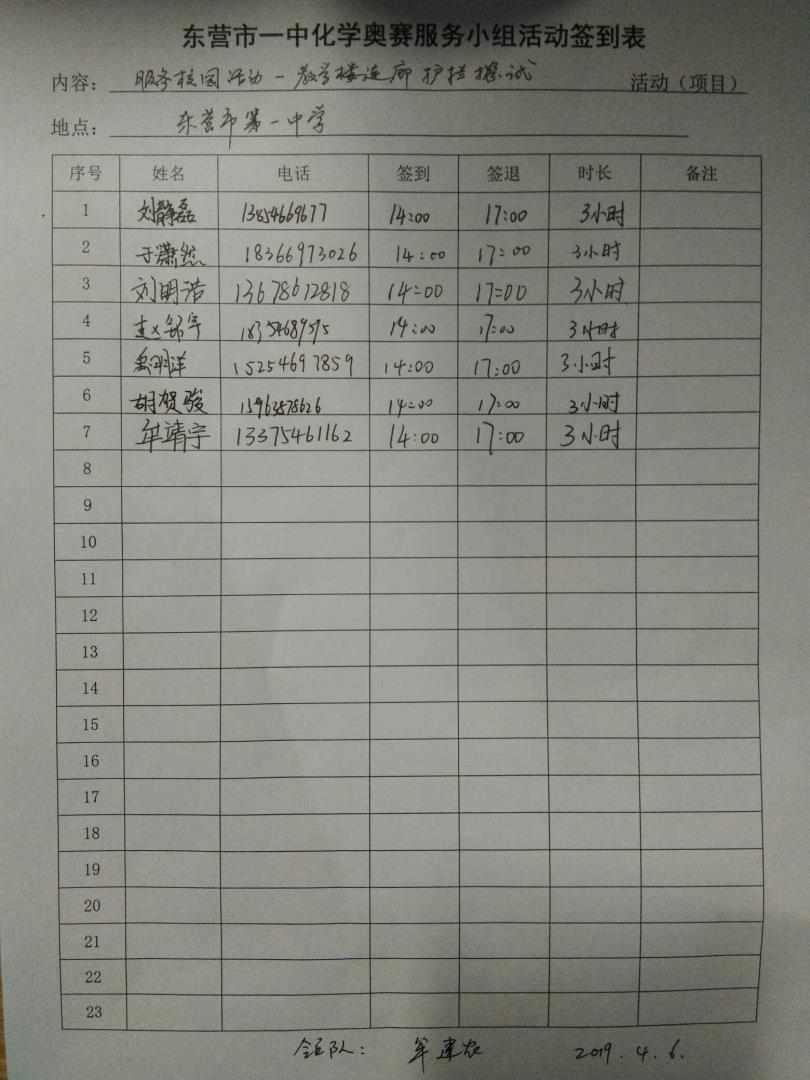 东营市一中化学奥赛服务小组活动签到表
内容： 服务校园活动－教学楼连廊护栏擦试 活动（项目）
地点： 东营市第一中学
序号 姓名 电话 签到 签退 时长 备注
1 刘静磊 13854669677 14:00 17:00 3小时
2 于潇然 18366973026 14:00 17:00 3小时
3 刘明浩 13678612818 14:00 17:00 3小时
4 赵铭宇 18354689595 14:00 17:00 3小时
5 明洋 15254697859 14:00 17:00 3小时
6 胡贺骏 15963578626 14:00 17:00 3小时
7 牟靖宇 13375461162 14:00 17:00 3小时
8
9
10
11
12
13
14
15
16
17
18
19
20
21
22
23
领队： 牟建农 2019.4.6.